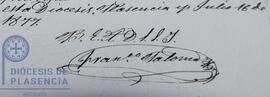 esta Diócesis. Plasencia y Julio 16 de
1877.
Fran.co Palomo
DIÓCESIS DE
PLASENCIA